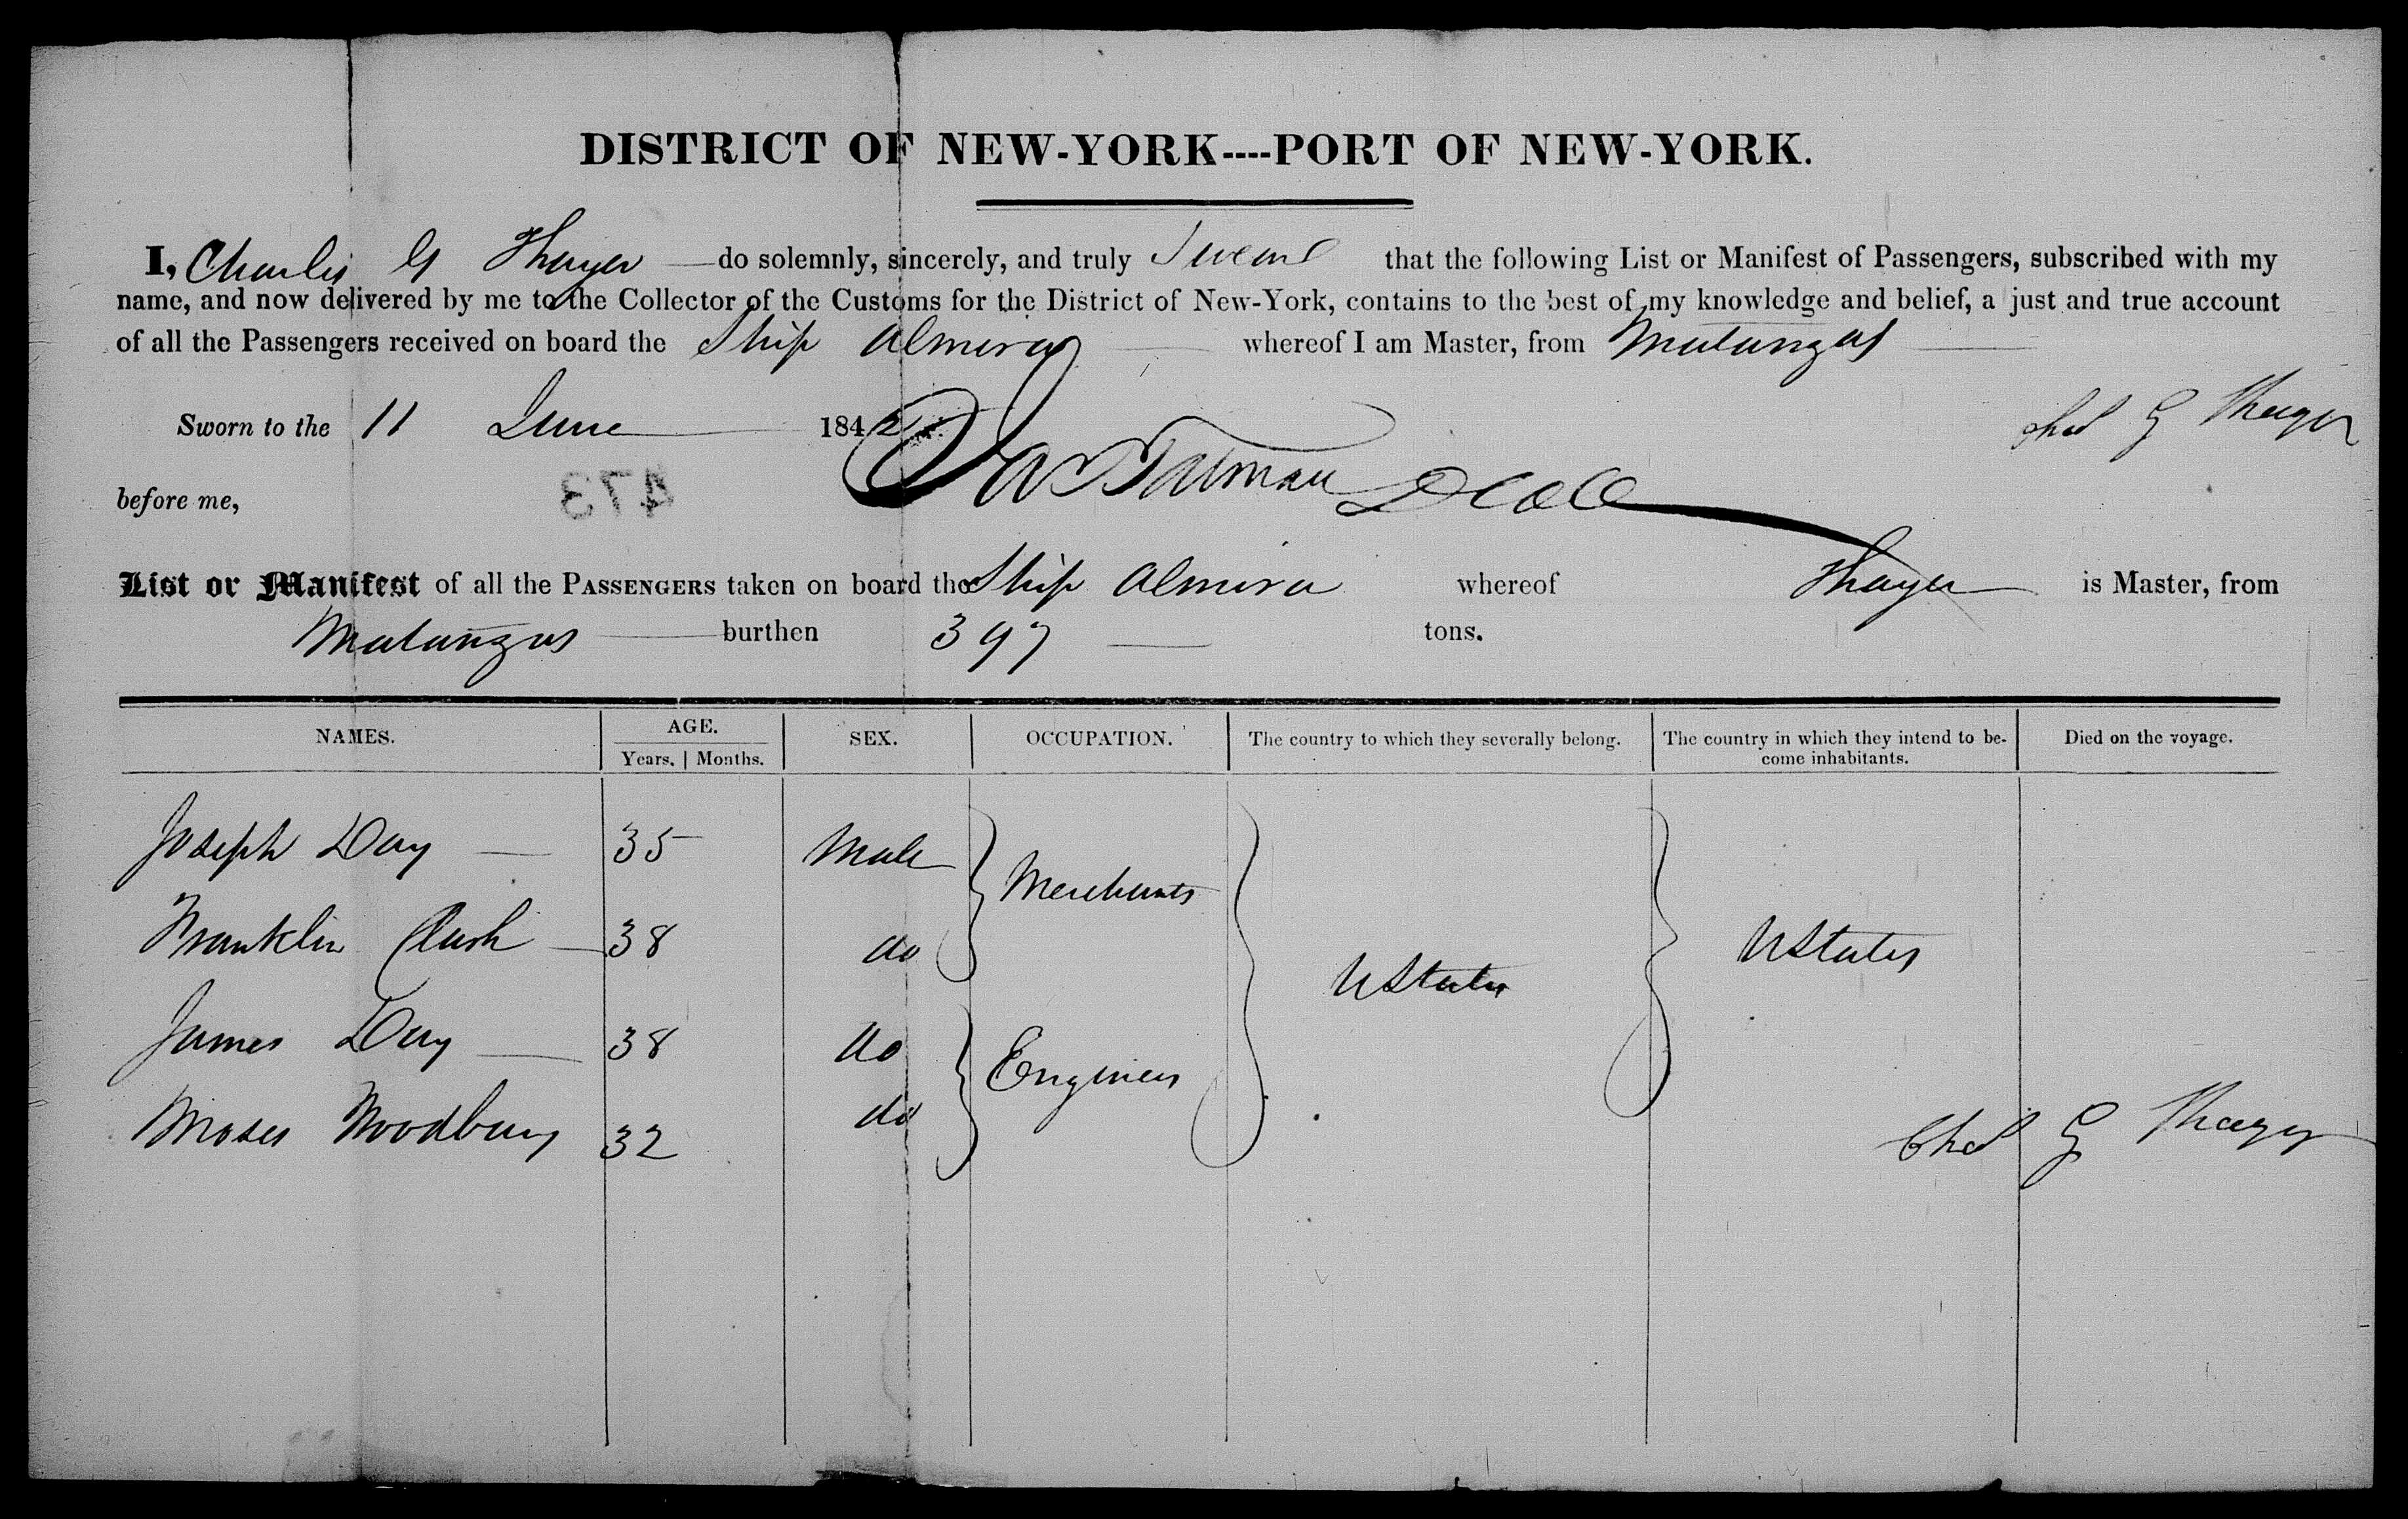 DISTRICT OF NEW-YORK----PORT OF NEW-YORK.
I, Charles G Thayer do solemnly, sincerely, and truly Swear that the following List or Manifest of Passengers, subscribed with my
name, and now delivered by me to the Collector of the Customs for the District of New-York, contains to the best of my knowledge and belief, a just and true account
of all the Passengers received on board the Ship Almira whereof I am Master, from Matanzas
Sworn to the 11 June 1842 Chas G Thayer
before me, 473
List or Manifest of all the PASSENGERS taken on board the Ship Almira whereof Thayer is Master, from
Matanzas burthen 397 tons.
NAMES. AGE. SEX. OCCUPATION. The country to which they severally belong. The country in which they intend to be- Died on the voyage.
Years. | Months. come inhabitants.
Joseph Day 35 Male Merchants
Franklin 38 do UStates UStates
James Day 38 do Engineers
Moses Woodbury 32 do
Chas G Thayer